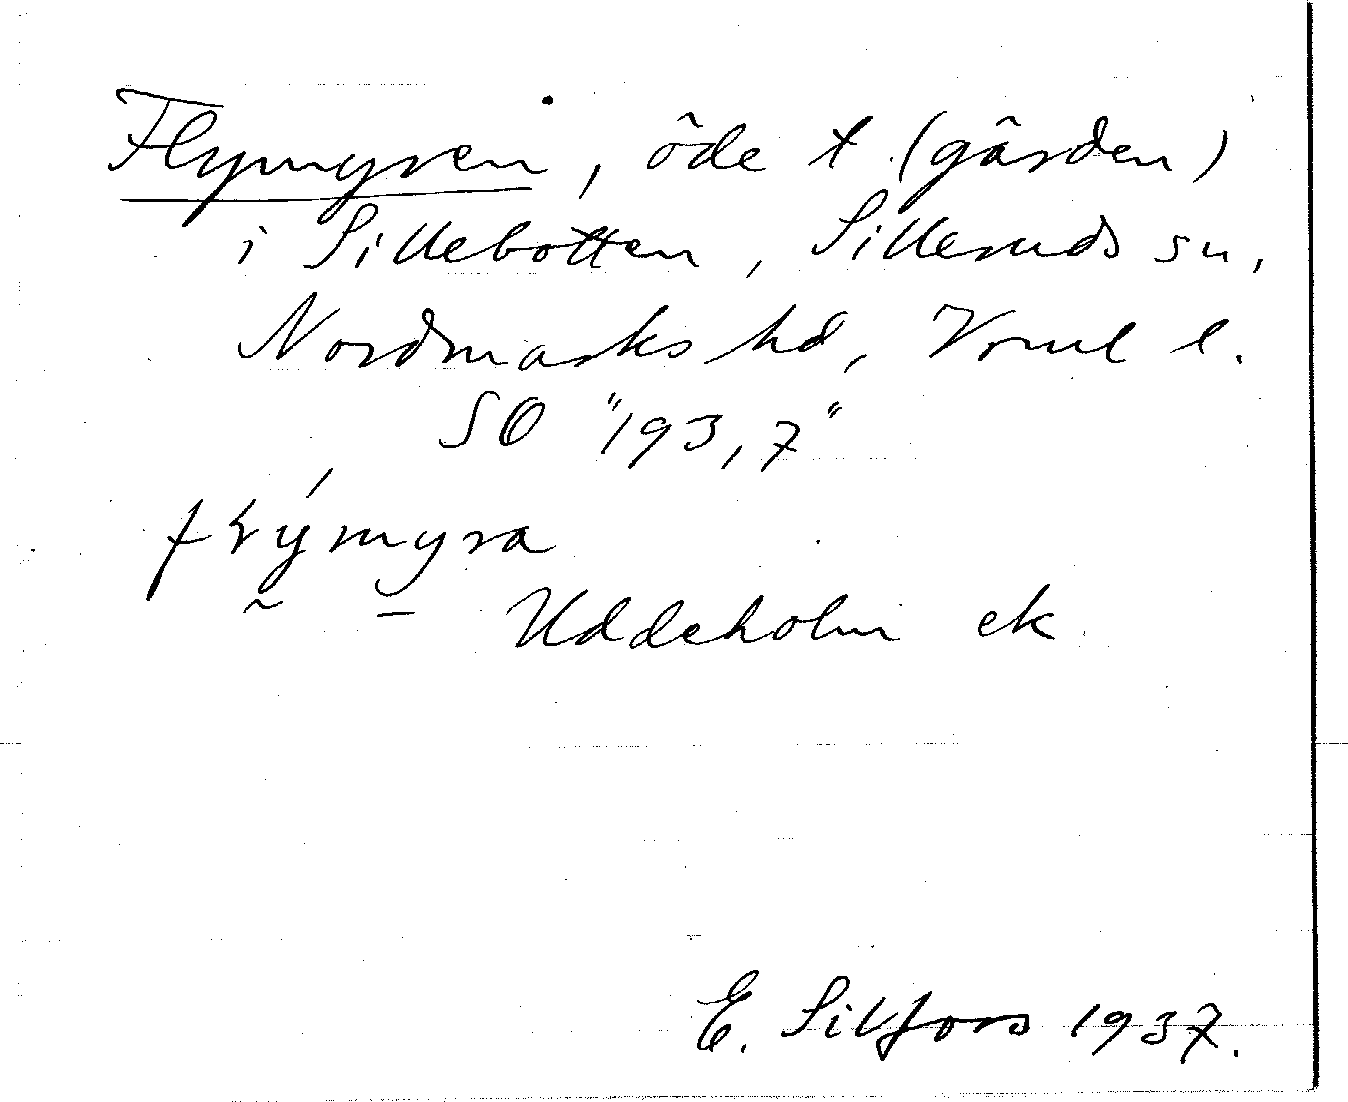 Flymyren, öde t. (gården)
i Sillebotten, Silleruds sn,
Nordmarks hd, Vrml l.
SO "193,7"
Uddeholm ek
E. Silfors 1937.